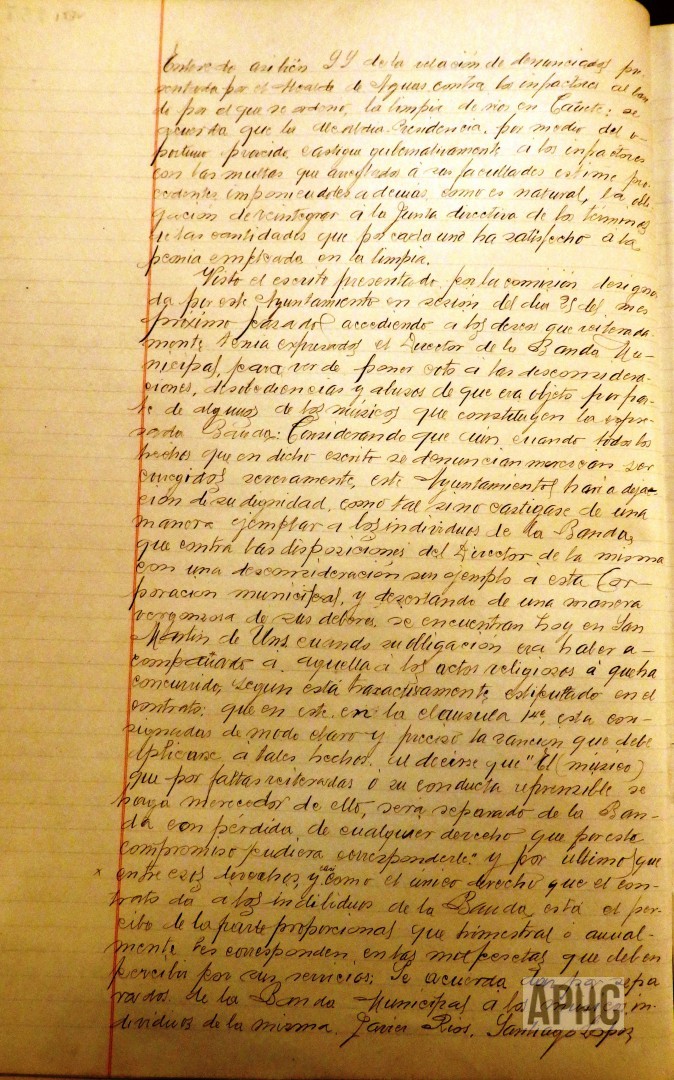 Enterado asi bien SS de la relación de denunciados pre-
sentada por el Alcalde de Aguas contra los infractores al ban-
do por el que se ordenó la limpia de rios en Cañete; se
acuerda que la Alcaldia-Presidencia, por medio del o-
portuno proceda, castigue gubernativamente a los infractores
con las multas que arreglados á sus facultades estime pro-
cedentes imponiendoles ademas, como es natural, la obli-
gacion de reintegrar a la Junta directiva de los terminos
de las cantidades que por cada uno ha satisfecho á la
peonia empleada en la limpia.
Visto el escrito presentado por la comisión designa-
da por este Ayuntamiento en sesion del dia 25 del mes
próximo pasado accediendo a los deseos que reiterada-
mente tenia expresados el Director de la Banda Mu-
nicipal, para ver de poner coto a las desconsidera-
ciones, desobediencias y abusos de que era objeto por par-
te de algunos de los músicos que constituyen la expre-
sada Banda: Considerando que aún cuando todos los
hechos que en dicho escrito se denuncian merezcan ser
corregidos severamente, este Ayuntamiento haria deja-
ción de su dignidad, como tal si no castigase de una
manera ejemplar a los individuos de la Banda,
que contra las disposiciones del Director de la misma
con una desconsideración sin ejemplo á esta Cor-
poracion municipal, y desertando de una manera
vergonzosa de sus deberes, se encuentran hoy en San
Martin de Unx cuando su obligacion era haber a-
compañado a aquella a los actos religiosos á que ha
concurrido, segun está taxactivamente estipulado en el
contrato; que en este, en la clausula 14ª, esta con-
signadas de modo claro y preciso la sancion que debe
aplicarse á tales hechos, al decirse que "El (músico)
que por faltas reiteradas ó su conducta reprensible se
haga merecedor de ello, sera separado de la Ban-
da con pérdida, de cualquier derecho que por este
compromiso pudiera corresponderle: y por último que
entre esos derechos, y aun como el único derecho que el con-
trato dá a los individuos de la Banda, está el per-
cibo de la parte proporcional que trimestral ó anual-
mente les corresponden, en las mil pesetas que deben
percibir por sus servicios; Se acuerda dar por sepa-
rados de la Banda Municipal a los in-
dividuos de la misma. Javier Rios, Santiago Lopez
APHC